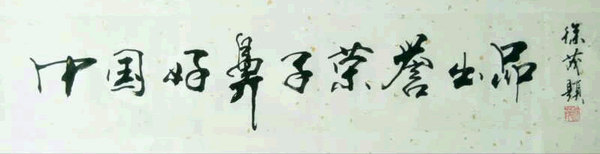 中国好鼻子荣誉出品
徐茂题